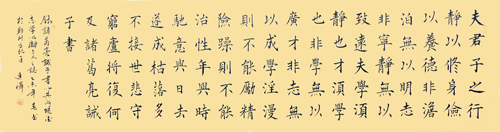 夫君子之行
靜以修身儉
以養德非澹
泊無以明志
非寧靜無以
致遠夫學須
靜也才須學
也非學無以
廣才非志無
以成學慆慢
則不能勵精
險躁則不能
治性年與時
馳意與日去
遂成枯落多
不接世悲守
窮廬將復何
及諸葛亮誡
子書
錄諸葛亮誡子書